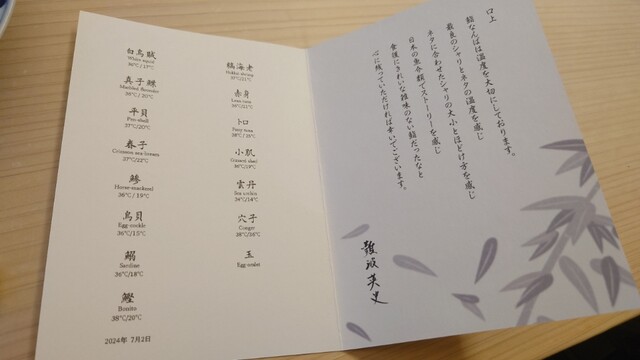 白烏賊
White squid
36℃/17℃
真子鰈
Marbled flounder
38℃/20℃
平貝
Pen shell
37℃/20℃
春子
Crimson sea bream
37℃/22℃
鯵
Horse-mackerel
36℃/19℃
鳥貝
Egg-cockle
36℃/15℃
鰯
Sardine
36℃/18℃
鰹
Bonito
38℃/20℃
2024年 7月2日
縞海老
Hokkai shrimp
37℃/21℃
赤身
Lean tuna
トロ
Fatty tuna
小肌
Gizzard shad
雲丹
Sea urchin
34℃/14℃
穴子
Conger
玉
Egg omlet
口上
鮨なんばは温度を大切にしております。
最良のシャリとネタの温度を感じ
ネタに合わせたシャリの大小とほどけ方を感じ
日本の魚や鮨でストーリーを感じ
食後にきれいな雑味のない鮨だったなと
心に残っていただければ幸いでございます。
難波英史